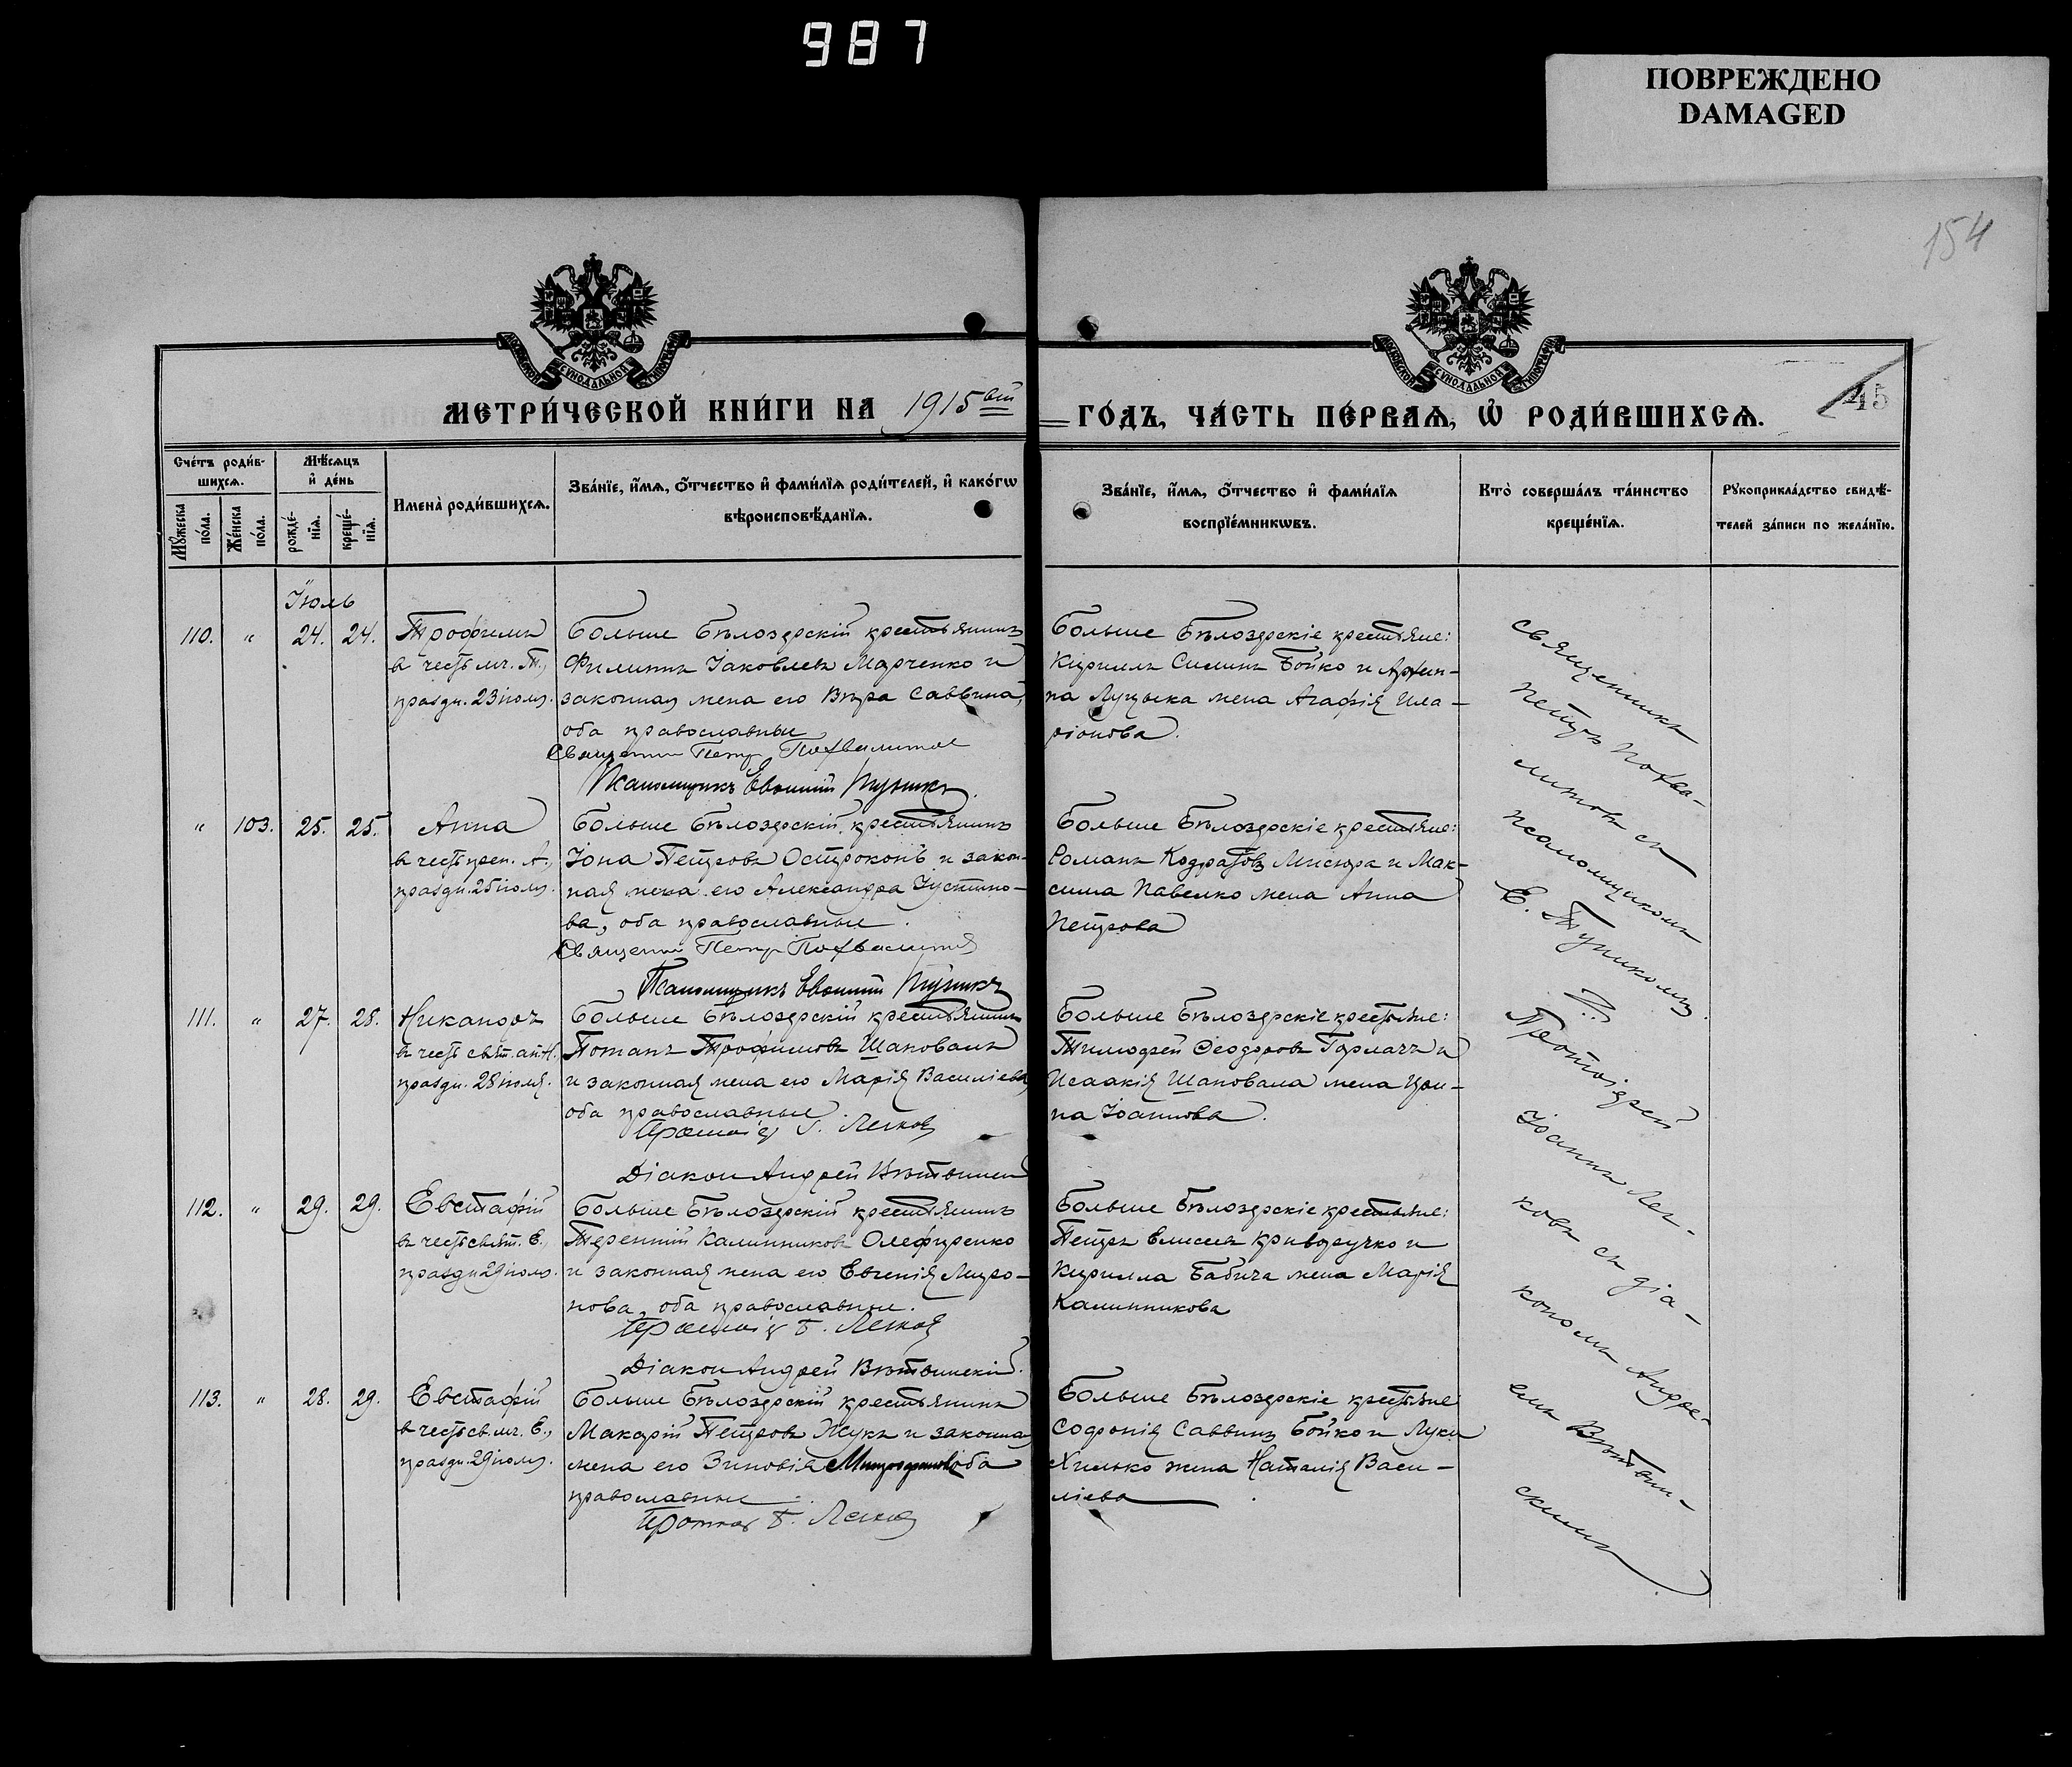 987
ПОВРЕЖДЕНО
DAMAGED
154
МЕТРИ́ЧЕСКОЙ КНИ́ГИ НА 1915 ый
ГО́ДЪ, ЧА́СТЬ ПЕ́РВАЯ, Ѿ РОДИ́ВШИХСЯ.
45
Сче́тъ роди́в-
шихся.
Му́жеска по́ла.
Же́нска по́ла.
Мѣ́сяцъ
и де́нь
рожде́-
нїя.
креще́-
нїя.
Имена̀ роди́вшихся.
Зва́нїе, и́мя, о́тчество и фами́лїя роди́телей, и како́гѡ
вѣроисповѣ́данїя.
Зва́нїе, и́мя, о́тчество и фами́лїя
воспрїе́мникѡвъ.
Кто̀ соверша́лъ та́инство
креще́нїя.
Рꙋкоприкла́дство свидѣ́-
телей за́писи по жела́нїю.
Іюль
110. " 24. 24.
Трофимъ
в честь мч. Т.,
праздн. 23 іюля.
Больше Бѣлозерскій крестьянинъ
Филиппъ Іаковлевъ Марченко и
законная жена его Вѣра Саввина,
оба православные
Священник Петр Похвалитов
Псаломщикъ Евфимій Пузикъ.
Больше Бѣлозерскіе крестьяне:
Кириллъ Силинъ Бойко и
на Луцыка жена Агафія Ила-
ріонова.
" 103. 25. 25.
Анна
в честь преп. А.,
праздн. 25 іюля.
Больше Бѣлозерскій крестьянинъ
Іона Петровъ Остроконь и закон-
ная жена его Александра Іустино-
ва, оба православные.
Священник Петр Похвалитов
Псаломщикъ Евфимій Пузикъ
Больше Бѣлозерскіе крестьяне:
Романъ Кодратовъ Мисюра и Мак-
сима Павелко жена Анна
Петрова
111. " 27. 28.
Никаноръ
в честь свят. ап. Н.
праздн. 28 іюля.
Больше Бѣлозерскій крестьянинъ
Потапъ Трофимовъ Шаповалъ
и законная жена его Марія Василіева,
оба православные.
Протоіер І. Легков
Діакон Андрей Вѣтвинскій
Больше Бѣлозерскіе крестьяне:
Тимофей Ѳеодоровъ Горлачъ и
Исаакія Шаповала жена Ири-
на Іоаннова.
112. " 29. 29.
Евстафій
в честь свят. Е.,
праздн 29 іюля.
Больше Бѣлозерскій крестьянинъ
Терентій Калинниковъ Олефиренко
и законная жена его Евгенія Миро-
нова, оба православные.
Протоіер І. Легков
Діакон Андрей Вѣтвинскій.
Больше Бѣлозерскіе крестьяне:
Петръ Елисеевъ Криворучко и
Кирилла Бабича жена Марія
Калинникова
113. " 28. 29.
Евстафій
в честь св. мч. Е.,
праздн. 29 іюля.
Больше Бѣлозерскій крестьянинъ
Макарій Петровъ Жукъ и законная
жена его Зиновія оба
православные
Протоіер І. Легков
Больше Бѣлозерскіе крестьяне
Софронія Саввинъ Бойко и Луки
Хилько жена Наталія Васи-
ліева
священникъ
Петръ Похва-
литовъ съ
псаломщикомъ
Е. Пузикомъ.
Протоіерей
Іоаннъ Лег-
ковъ съ діа-
кономъ Андре-
емъ Вѣтвин-
скимъ